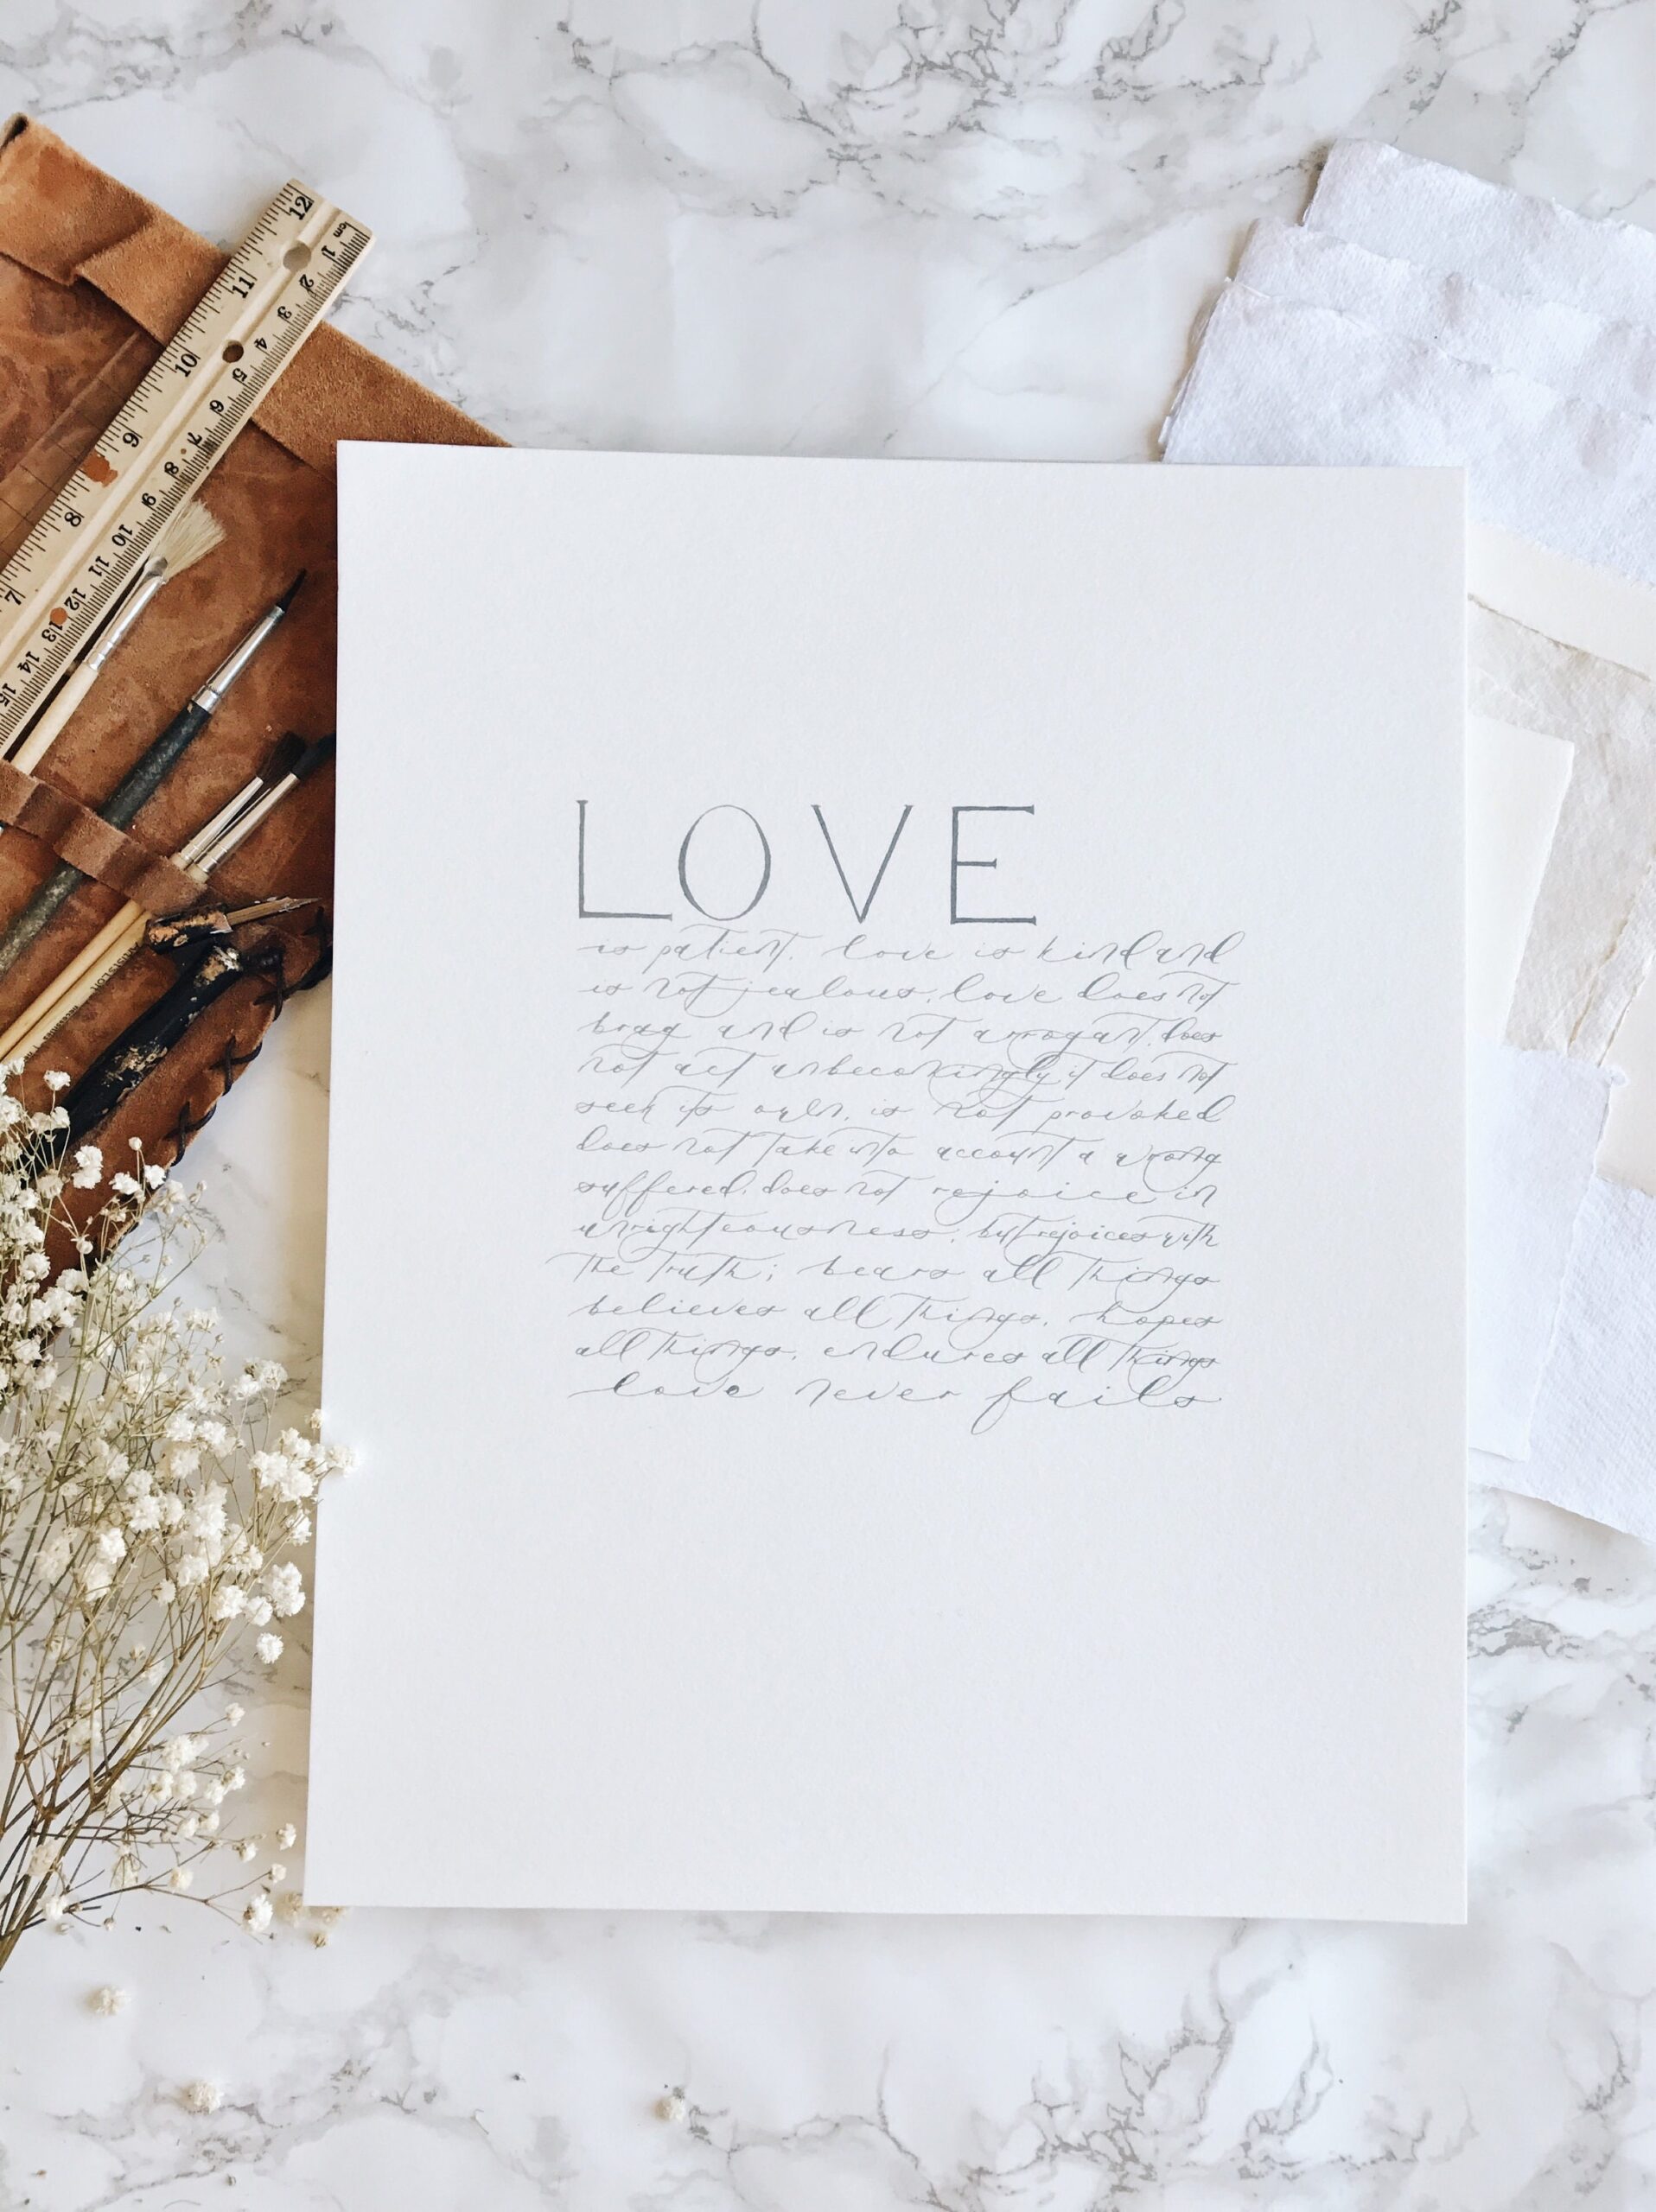 12
11
10
9
8
7
cm 1 2 3 4 5 6 7 8 9 10 11 12 13 14 15
LOVE
is patient. love is kind and
is not jealous, love does not
brag and is not arrogant, does
not act unbecomingly, it does not
seek its own, is not provoked
does not take into account a wrong
suffered, does not rejoice in
unrighteousness, but rejoices with
the truth; bears all things
believes all things, hopes
all things, endures all things
love never fails